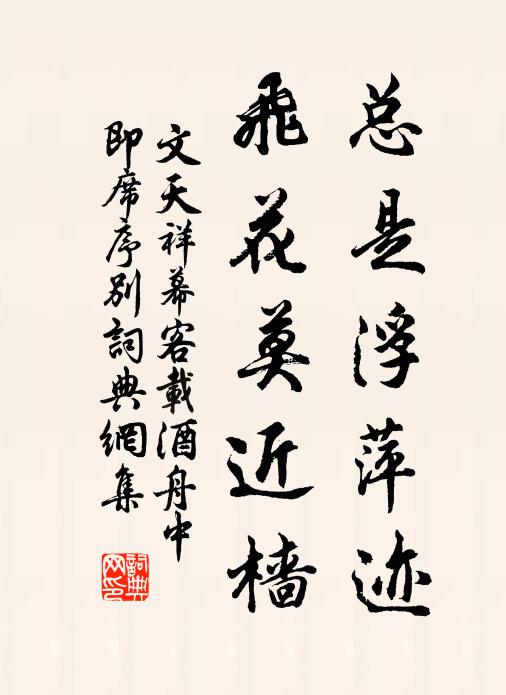 总是浮萍迹
飛花莫近檣
文天祥幕客載酒舟中
即席序别詞典網集
詞典网印